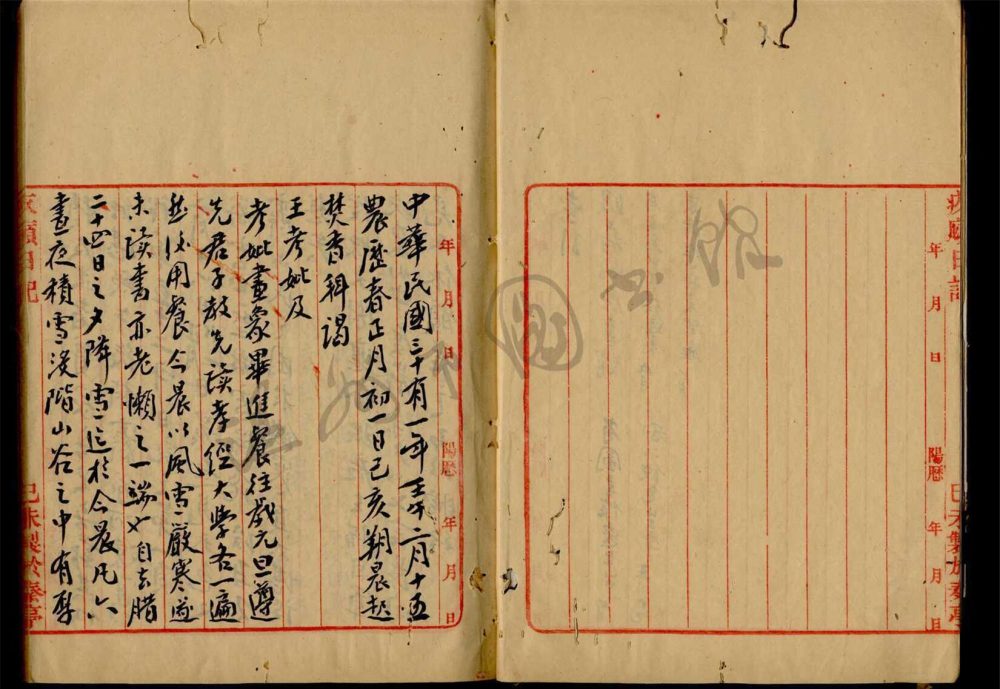 年 月 日 陽曆 年 月 日
年 月 日 陽曆 年 月 日
中華民國三十有一年壬午二月十五
農歷春正月初一日己亥朔晨起
焚香拜謁
王考妣及
考妣畫象畢進餐往歲元旦遵
先君子教先讀孝經大學各一遍
然後用餐今晨以風雪嚴寒並
未讀書亦老懶之一端也自去臘
二十四日之夕降雪迄於今晨凡六
晝夜積雪沒階山谷之中有厚
己未製於秦亭